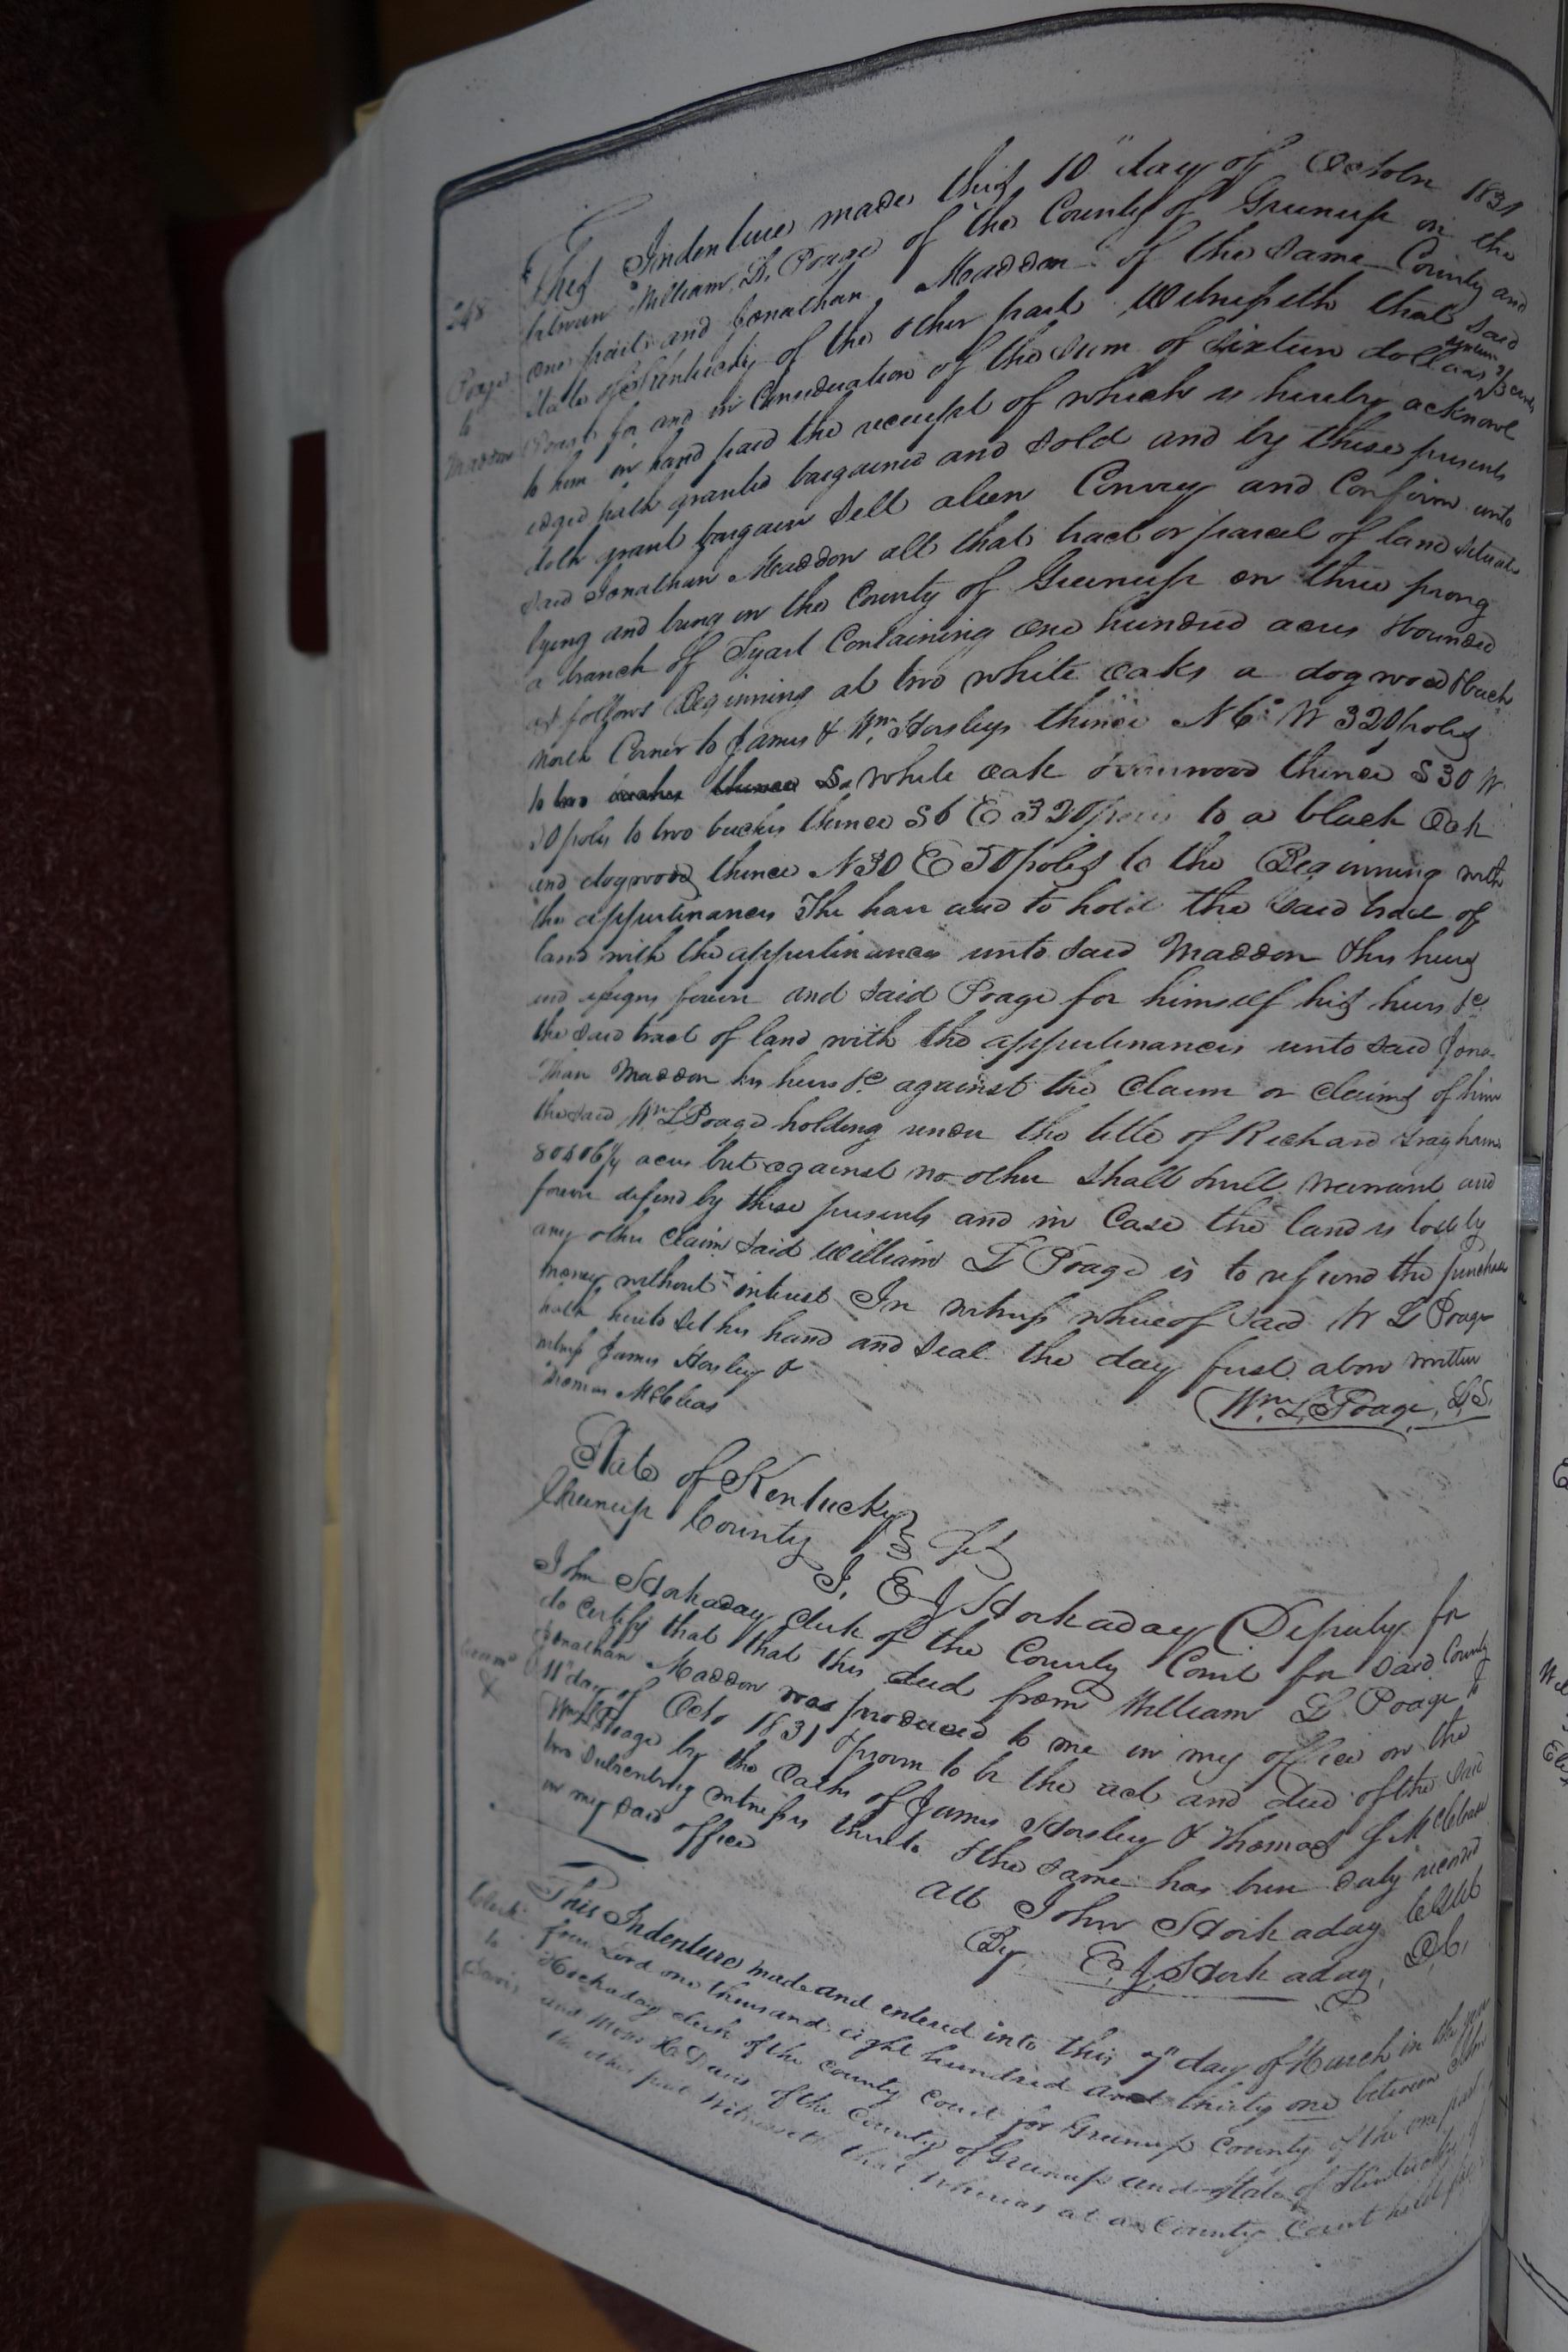 248
Poage
to
Maddon
This Indenture made this 10" day of October 1831
between William L. Poage of the County of Greenup on the
one part and Jonathan Maddon of the same County and
State of Kentucky of the other part Witnesseth that said
Poage for and in Consideration of the sum of Sixteen dollars
to him in hand paid the receipt of which is hereby acknowl
edged hath granted bargained and sold and by these presents
doth grant bargain sell alien Convey and Confirm unto
said Jonathan Maddon all that tract or parcel of land situate
lying and being in the County of Greenup on three prong
a branch of Tygart Containing one hundred acres bounded
as follows Beginning at two white oaks a dogwood & buck
North Corner to James & Wm. Horsleys thence N6° W 320 poles
to two thence S a white oak thence S30 W
50 poles to two buckes thence S6 E 320 poles to a black Oak
and dogwood thence N30 E 50 poles to the Beginning with
the appurtinances The have and to hold the said tract of
land with the appurtinances unto said Maddon & his heirs
and assigns forever and said Poage for himself his heirs &c
the said tract of land with the appurtinances unto said Jona-
than Maddon his heirs &c against the Claim or claims of him
the said Wm L Poage holding under the title of Richard Grayhams
acres but against no other shall & will warrant and
forever defend by these presents and in Case the land is lost by
any other Claim said William L Poage is to refund the purchase
money without intrest In witness whereof said W L Poage
hath hereto set his hand and seal the day first above written
witness James Horsley &
Thomas McCleas
Wm. L. Poage, L,S,
State of Kentucky
Greenup County Sct
I, E J Hockaday Deputy for
John Hockaday clerk of the County Court for said County
do Certify that that this deed from William L Poage to
Jonathan Maddon was produced to me in my office on the
11" day of Octo 1831 & proven to be the act and deed of the said
Wm L Poage by the oaths of James Horsley & Thomas J
two subscribing witnesses thereto & the same has been duly record
in my said office
Att John Hockaday
By E. J. Hockaday, D,C,
Clerk
to
Davis
This Indenture made and entered into this 7" day of March in the year
of our Lord one thousand eight hundred and thirty one between John
Hockaday clerk of the county Court for Greenup County of the one part
and Moss H. Davis of the County of Greenup and state of Kentucky of
the other part Witnesseth that whereas at a County Court held for